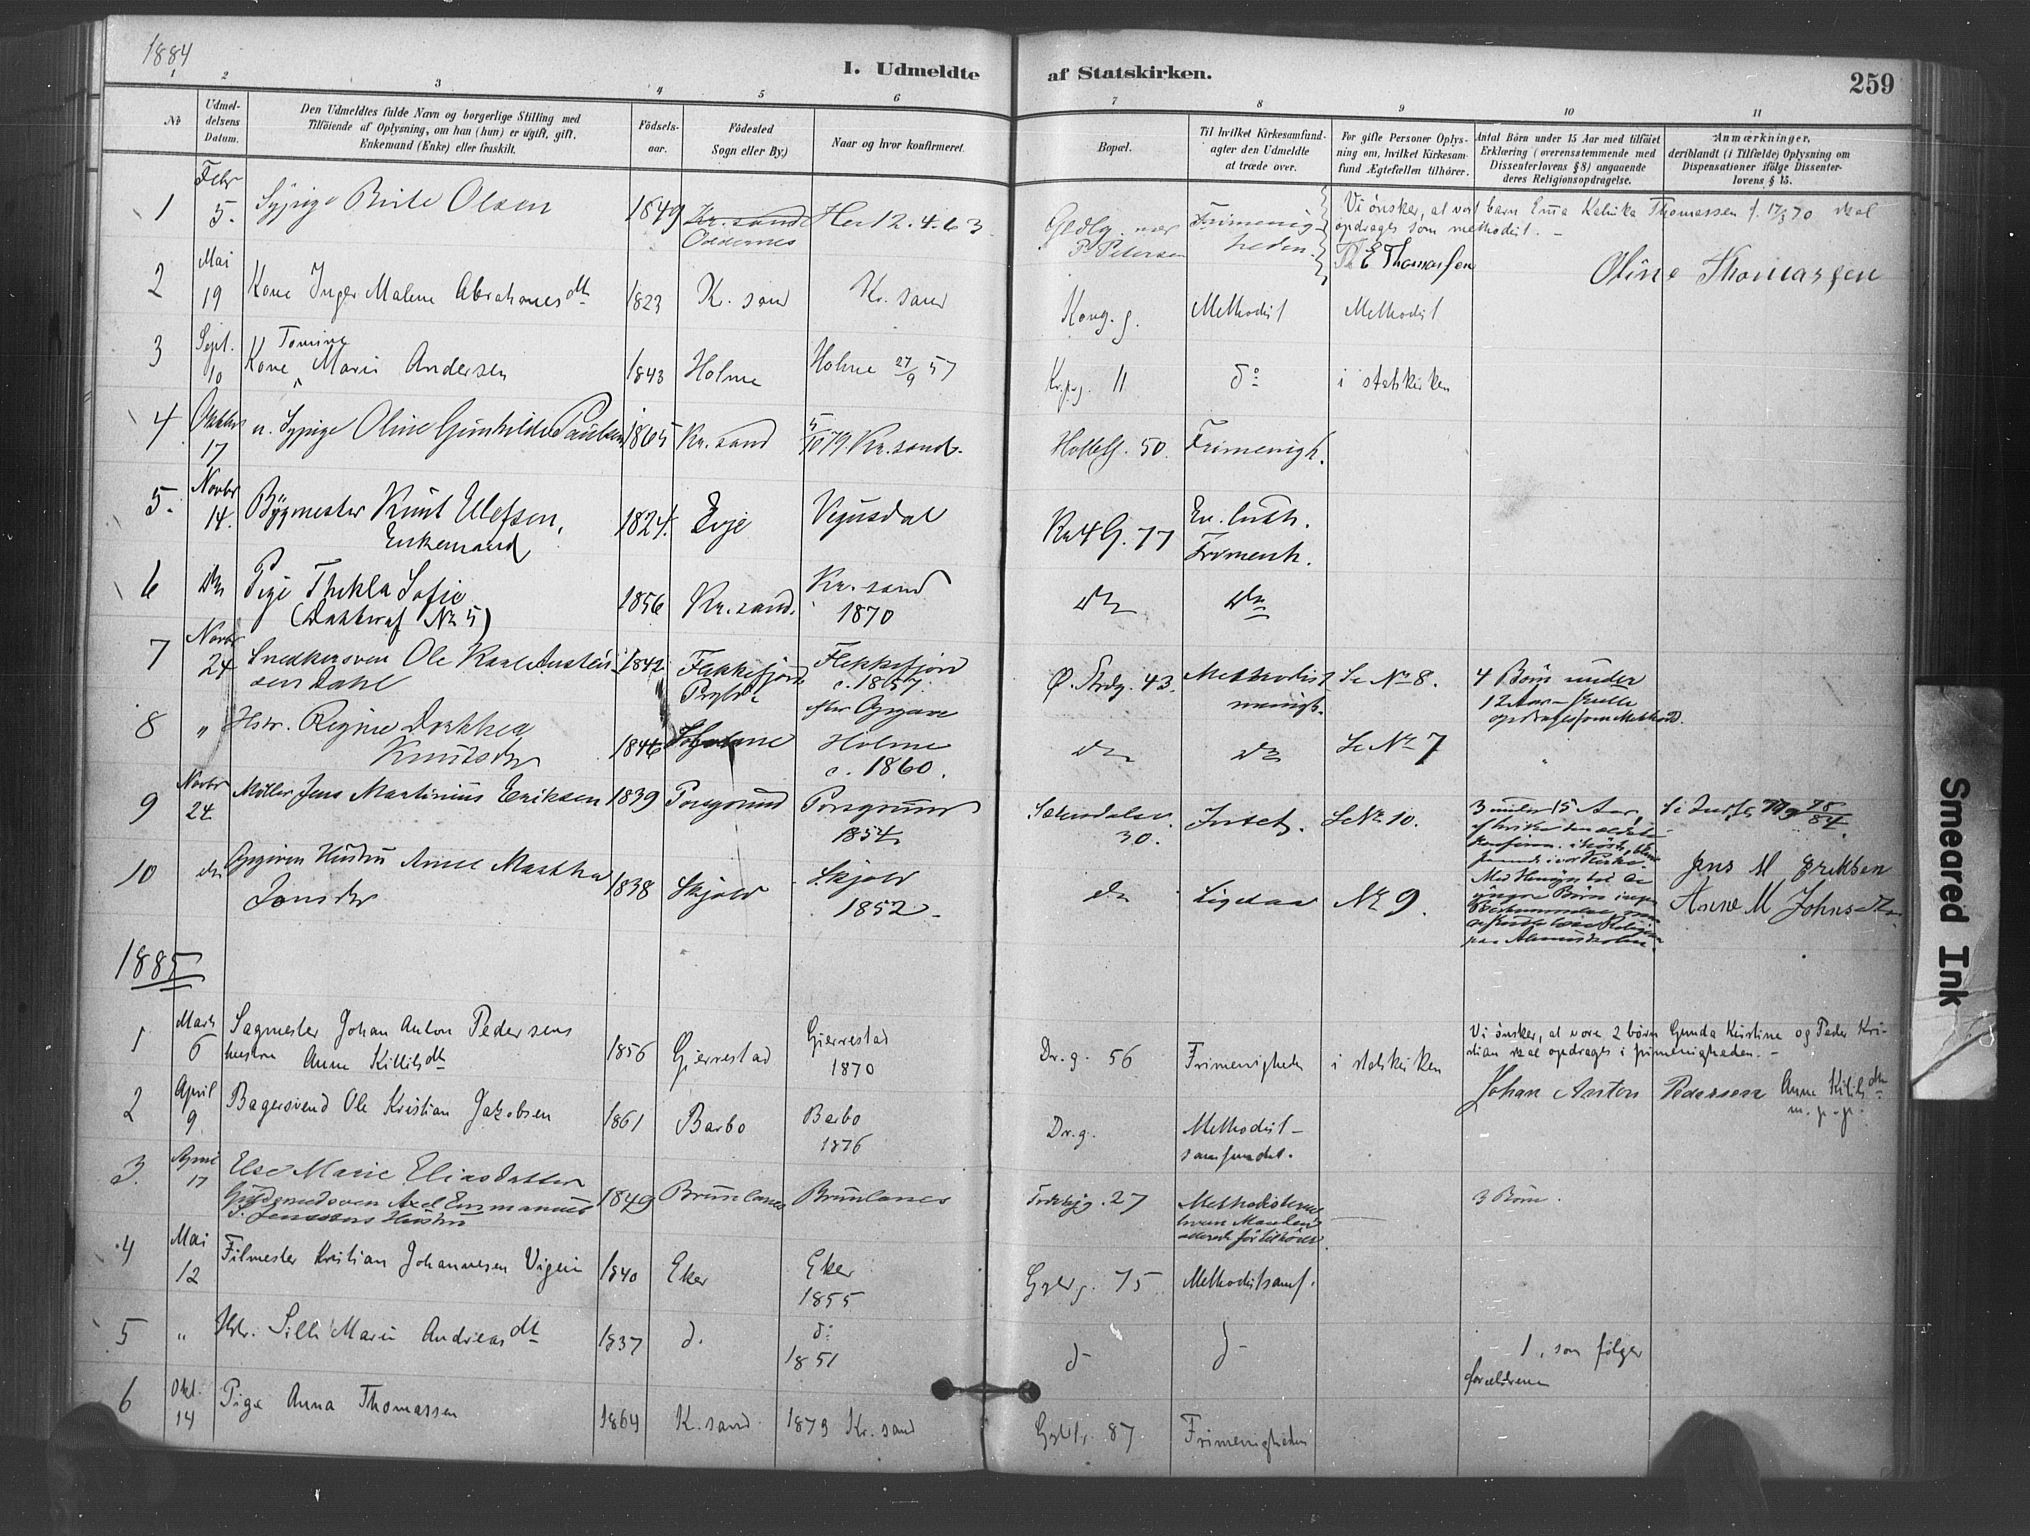 1884
I. Udmeldte af Statskirken.
259
1 2 3 4 5 6 7 8 9 10 11
No
Udmeldelsens Datum.
Den Udmeldtes fulde Navn og borgerlige Stilling med
Tilföiende af Oplysning, om han (hun) er ugift, gift,
Enkemand (Enke) eller fraskilt.
Födselsaar.
Födested
Sogn eller By.)
Naar og hvor konfirmeret.
Bopæl.
Til hvilket Kirkesamfund-
agter den Udmeldte
at træde over.
For gifte Personer Oplys-
ning om, hvilket Kirkesam-
fund Ægtefællen tilhörer.
Antal Börn under 15 Aar med tilföiet
Erklæring (overensstemmende med
Dissenterlovens § 8) angaaende
deres Religionsopdragelse.
Anmærkninger,
deriblandt (i Tilfælde) Oplysning om
Dispensationer ifölge Dissenter-
lovens § 15.
1 Febr 5. Sypige Birte Olsen 1849 Kr.sand Oddernes Her 12.4.63
P. Petersen Frimenig-
heden.
Vi ønsker, at vort barn Kalnika Thomassen skal
opdrages som methodist.
Th E Thomassen Oline Thomassen
2 Mai 19 Kone Inger Malene Abrahamsdtr 1823 K. sand Kr. sand Kong. g. Methodist Methodist
3 Sept. 10 Kone Tomine Marie Andersen 1843 Holme Holme 27/9 57 11 do i statskirken
4 Oktober 17 u. Sypige Oline Gunhilde Paulsen 1865 Kr.sand 5/10 79 Kr.sand. 50. Frimenigh.
5. Novbr 14. Bygmester Knut Ellefsen,
Enkemand 1824. Evje Vegusdal 77 Ev. luth.
Frimenh.
6 do Pige Thekla Sofie
(Datter af No 5) 1856 Kr.sand. Kr. sand
1870 do do
7 Novbr 24 Snedkersven Ole
sen Dahl 1842 Flekkefjord Flekkefjord
c. 1857.
efter Opgave Ø. Strdg. 43. Methodist
menigh. Se No 8. 4 Børn under
12 Aar
8 " Hstr. Regine Dorthea
Knutsdtr 1846 Holme Holme
c. 1860. do do Se No 7 "
9 Novbr 24 Møller Jens Martinius Eriksen 1839 Porsgrund Porsgrund
1854. 30. Intet. Se No 10. 3 under 15 Aar,
10 do Opgiven Hustru Anne Martha
Jonsdtr 1838 Skjold Skjold
1852. do Ligedan No 9.
Jens M Eriksen
Anne M Johnsdtr.
1885
1 Marts 6 Sagmester Johan Anton Pedersens
hustru Anne Kittilsdtr 1856 Gjerrestad Gjerrestad
1870 Dr.g. 56 Frimenigheden i statskirken
Vi ønsker, at vore 2 børn Gunda Kristine og Peder Kri-
stian skal opdrages i frimenigheden. -
Johan Anton Pedersen Anne Kitilsdtr
m. p. p.
2 April 9 Bagersvend Ole Kristian Jakobsen 1861 Barbo Barbo
1876 Dr.g. Methodist-
samfundet.
3. April 17 Else Marie Eliasdatter
Guldsmedsven Axel Emmanuel
Hustru 1849 Brunlanes Brunlanes 27 3 Børn.
4 Mai 12 Filmester Kristian Johannesen Vigen 1840 Eker Eker
1855 75 Methodistsamf.
5 " Hstr. Silli Marie Andreasdtr 1837 d. d:
1851 d- d- 1, som følger
forældrene
6 Okt. 14 Pige Anna Thomassen 1864 K. sand. 1879 Kr. sand 87 Frimenigheden
Smeared Ink